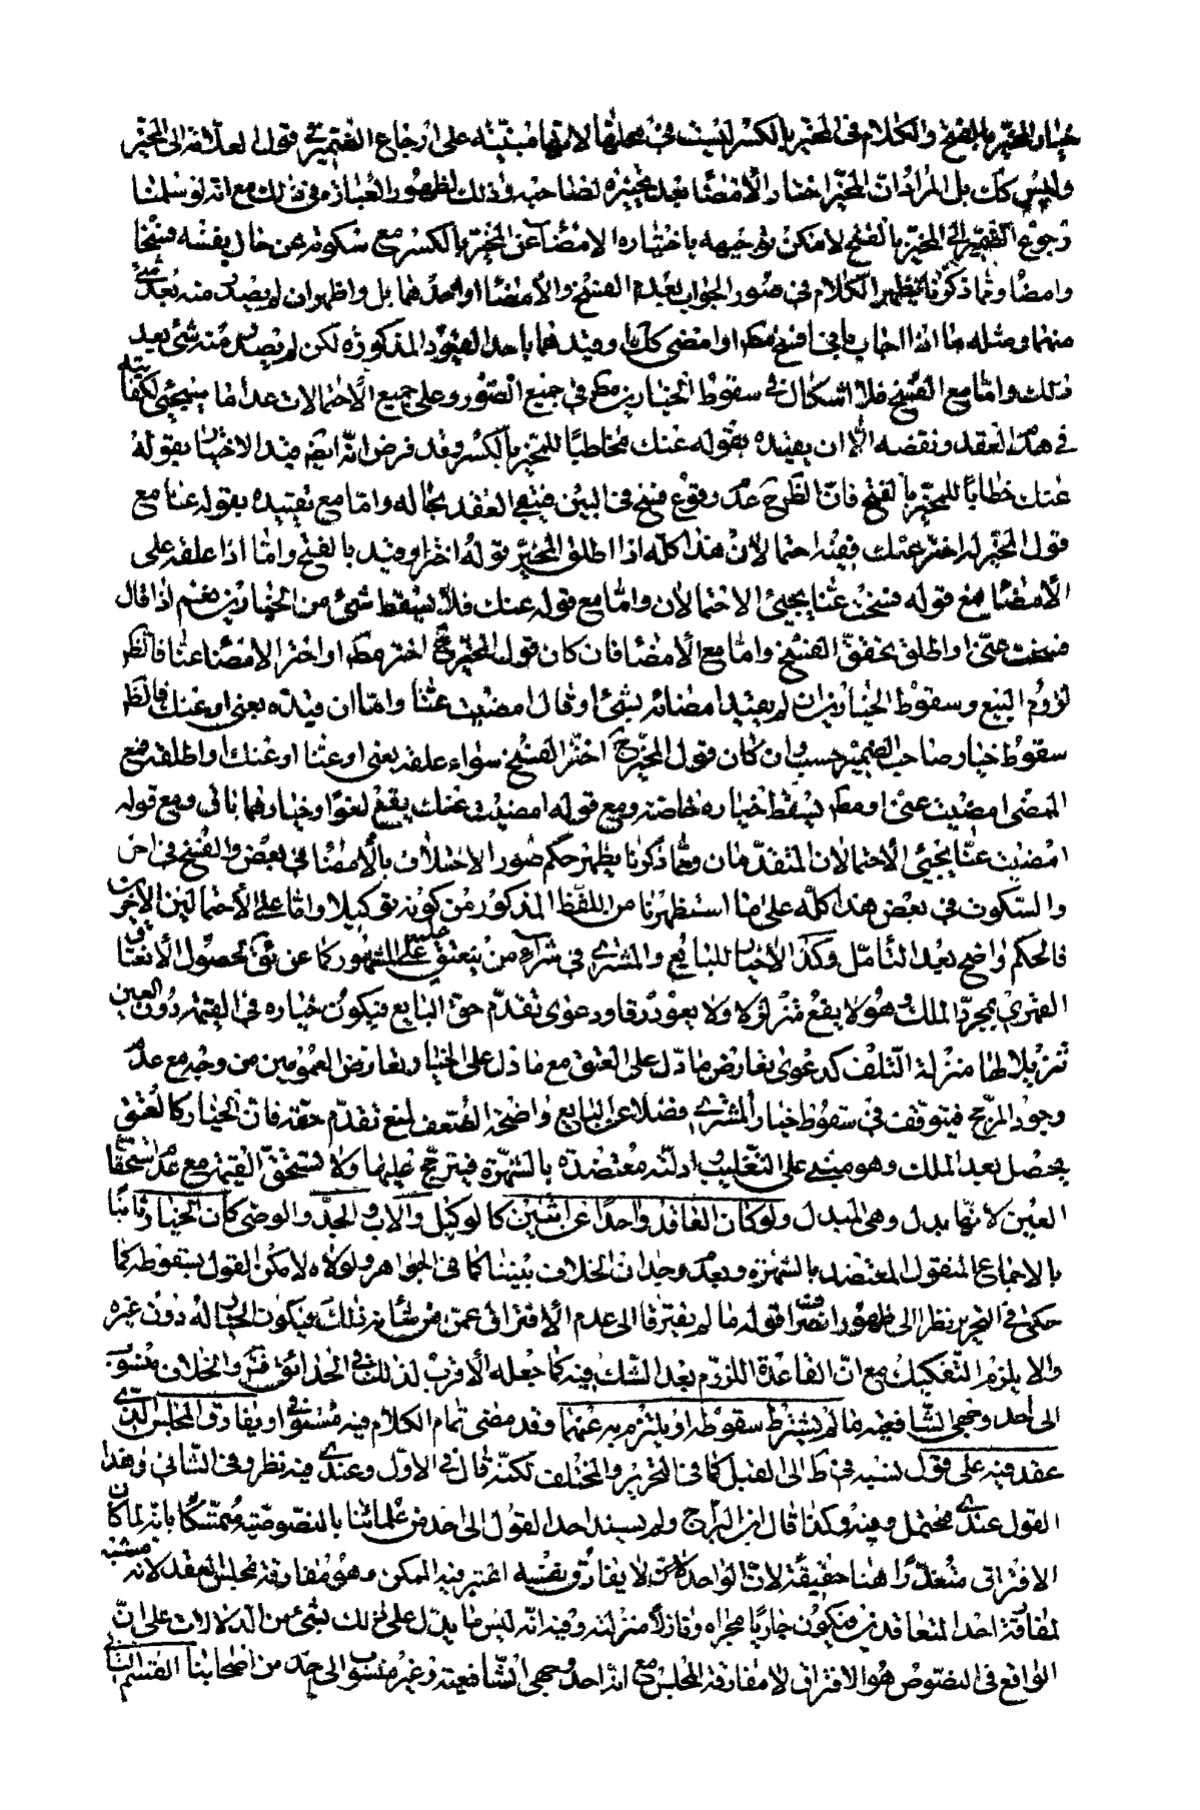 خيار المخير بالفتح والكلام في المخير بالكسر ليست في محلها لانها مبنية على ارجاع الضمير في قوله لصاحبه الى المخير
وليس كك بل المراد ان المخير اختار الامضاء بعد تخييره لصاحبه وذلك لظهور العبارة في ذلك مع انه لو سلمنا
رجوع الضمير الى المخير بالفتح لامكن توجيهه باختياره الامضاء عن المخير بالكسر مع سكوته عن حال نفسه فسخا
وامضاء ومما ذكرنا يظهر الكلام في صور الجواب بعده الفسخ والامضاء او احدهما بل واظهر ان لم يصدر منه بعد شئ
منهما ومثله ما اذا اجاب باني افسخ مط او امضى كك او قيدهما باحد القيود المذكورة لكن لم يصدر منه شئ بعد
ذلك واما مع الفسخ فلا اشكال في سقوط الخيارين مط في جميع الصور وعلى جميع الاحتمالات عدا ما سيجئ لكفايته
في هدم العقد ونقضه الا ان يقيده بقوله عنك مخاطبا للمخير بالكسر وقد فرض انه ايضا قيد الاختيار بقوله
عنك خطابا للمخير بالفتح فان الظاهر ح عدم وقوع فسخ في البين فيبقى العقد بحاله واما مع تقييده بقوله عنا مع
قول المخير له اختر عنك ففيه احتمالان هذا كله اذا اطلق المخير قوله اختر او قيد بالفسخ واما اذا علقه على
الامضاء فمع قوله فسخت عنا يجئ الاحتمالان واما مع قوله عنك فلا يسقط شئ من الخيارين نعم اذا قال
فسخت عني او اطلق تحقق الفسخ واما مع الامضاء فان كان قول المخير ح اختر مط او اختر الامضاء عنا فالظ
لزوم البيع وسقوط الخيارين ان لم يقيد امضائه بشئ او قال امضيت عنا واما ان قيده بعني او عنك فالظ
سقوط خيار صاحب الضمير حسب وان كان قول المخير ح اختر الفسخ سواء علقه بعني او عنا او عنك او اطلقه فمع
المضى امضيت عني او مط يسقط خياره خاصة ومع قوله امضيت عنك يقع لغوا وخيارهما باق ومع قوله
امضيت عنا يجئ الاحتمالان المتقدمان ومما ذكرنا يظهر حكم صور الاختلاف بالامضاء في بعض والفسخ في اخر
والسكوت في بعض هذا كله على ما استظهرنا من اللفظ المذكور من كونه توكيلا واما على الاحتمالين الاخرين
فالحكم واضح بعد التأمل وكذا الاختيار للبايع والمشتري في شراء من ينعتق عليه على المشهور كما عن ق لحصول الانعتاق
القهري بمجرد الملك وهو لا يقع متزلزلا ولا يعود رقا ودعوى تقدم حق البايع فيكون خياره في القيمة دون العين
تنزيلا لها منزلة التلف كدعوى تعارض ما دل على العتق مع ما دل على الخيار وتعارض العمومين من وجه مع عدم
وجود المرجح فيتوقف في سقوط خيار المشتري فضلا عن البايع واضحة الضعف لمنع تقدم حقه فان الخيار كالعتق
يحصل بعد الملك وهو مبني على التغليب ادلته معتضدة بالشهرة فيترجح عليها ولا يستحق القيمة مع عدم استحقاق
العين لانها بدل وهي المبدل ولو كان العاقد واحدا عن اثنين كالوكيل والاب والجد والوصى كان الخيار ثابتا
بالاجماع المنقول المعتضد بالشهرة وبعدم وجدان الخلاف بيننا كما في الجواهر ولولاه لامكن القول بسقوطه كما
حكى في التحرير نظرا الى ظهور انصراف قوله ما لم يفترقا الى عدم الافتراق عمن من شأنه ذلك فيكون الخيار له دون غيره
والا يلزم التفكيك مع ان القاعدة اللزوم بعد الشك فيه كما جعله الاقرب لذلك في الحدائق فتر والخلاف منسوب
الى احد وجهى الشافعية ما لم يشترط سقوطه او يلتزم به عنهما وقد مضى تمام الكلام فيه مستوفى او يفارق المجلس الذي
عقد فيه على قول نسبه في ط الى القيل كما في التحرير والمختلف لكنه قال في الاول وعندي فيه نظر وفي الثاني وهذا
القول عندي محتمل وفيه وكذا قال ابن البراج ولم يسند احد القول الى احد من علمائنا بالخصوصية متمسكا بانه لما كان
الافتراق متعذرا هنا حقيقة لان الواحد لا يفارق نفسه اعتبر فيه الممكن وهو مفارقة مجلس العقد لانه مشبه
لمفارقة احد المتعاقدين فيكون جاريا مجراه ونازلا منزلته وفيه انه ليس ما يدل على ذلك بشئ من الدلالات على ان
الواقع في النصوص هو الافتراق لا مفارقة المجلس مع انه احد وجهى الشافعية وغير منسوب الى احد من اصحابنا القسم الثاني